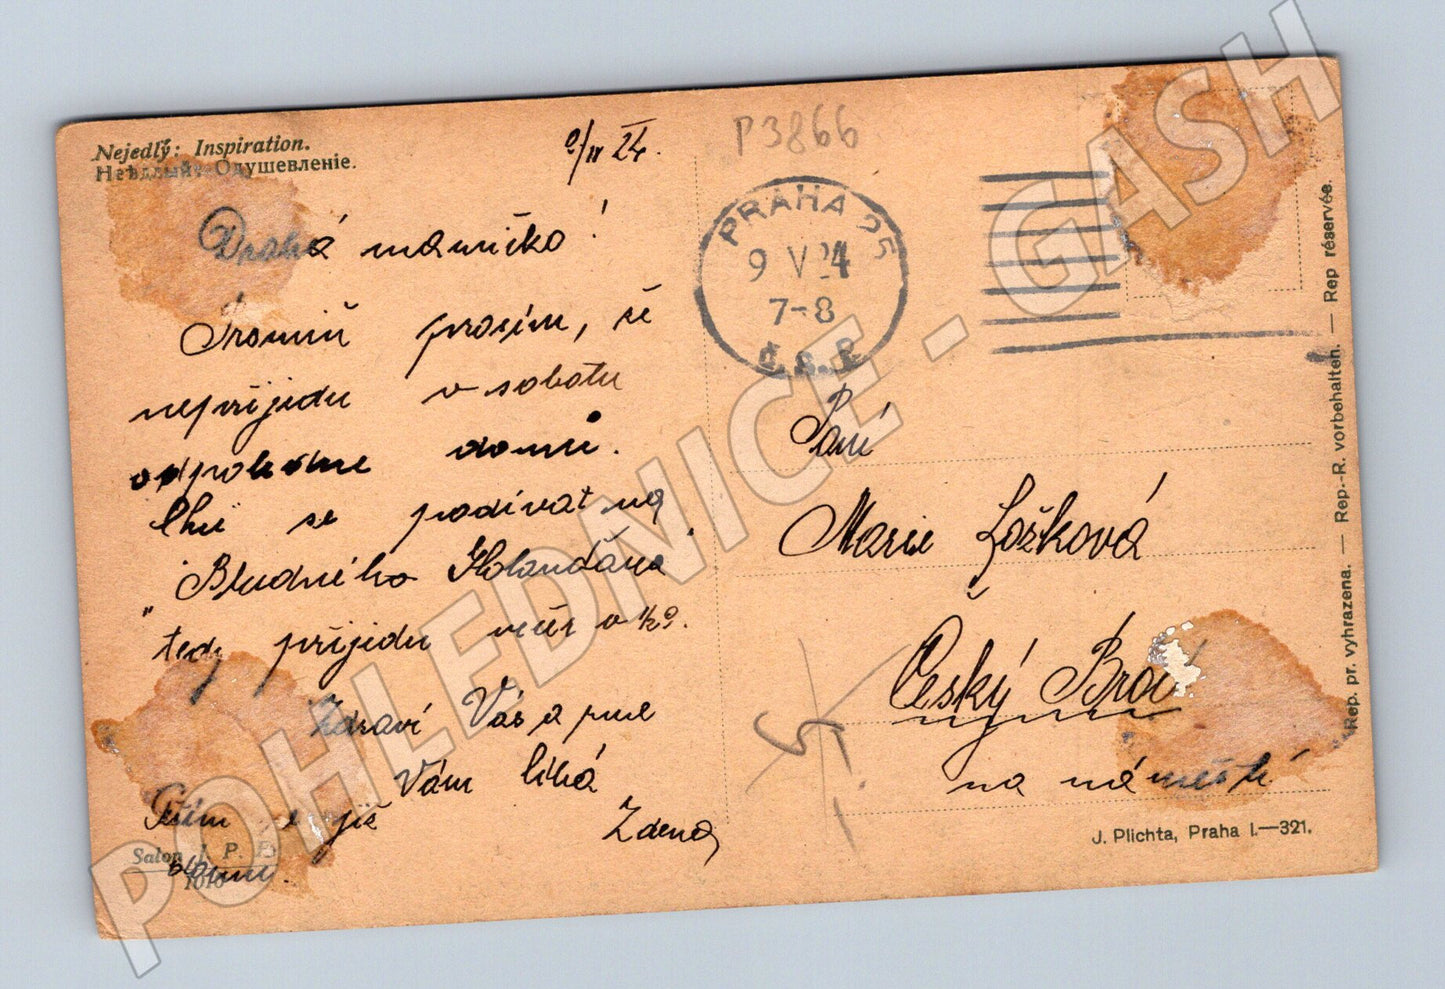 Nejedlý: Inspiration.
Неѣдлый: Одушевленіе.
9/V 24.
P3866
PRAHA 25
9 V 24
7-8
Č.S.P.
Drahá mamičko!
Promiň prosím, že
nepřijedu v sobotu
odpoledne domů.
Chci se podívat na
"Bludného Holanďana"
tedy přijedu večer v ½9.
Zdraví Vás a pusu
Vám líbá
Těším se již
Zdena
domů.
Salon J. P. P.
1010
Paní
Marie Ložková
Český Brod
na náměstí
J. Plichta, Praha I.—321.
Rep. pr. vyhrazena. — Rep.-R. vorbehalten. — Rep réservée.
POHLEDNICE - GASH